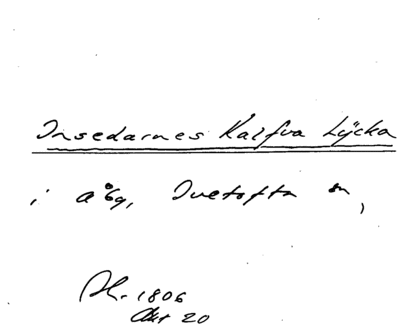 Insedarnes Kalfva Lÿcka
i Tvetofta sn,
1806
Okt 20